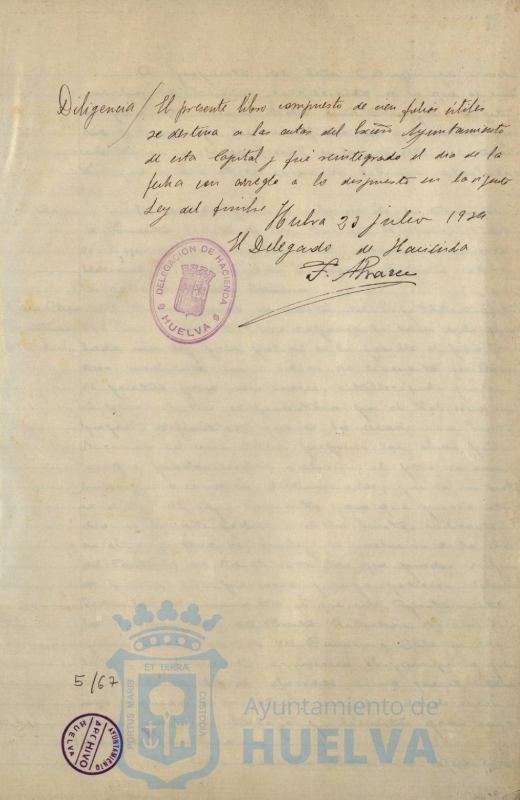 Diligencia / El presente libro compuesto de cien folios útiles
se destina a las actas del Excmo Ayuntamiento
de esta Capital y fué reintegrado el dia de la
fecha con arreglo a lo dispuesto en la vigente
Ley del timbre
Huelva 23 julio 1924
El Delegado de Hacienda
F. Alvarez
DELEGACION DE HACIENDA
HUELVA
5/67
ET TERRÆ
PORTUS MARIS
CUSTODIA
AYUNTAMIENTO
ARCHIVO
HUELVA
Ayuntamiento de
HUELVA